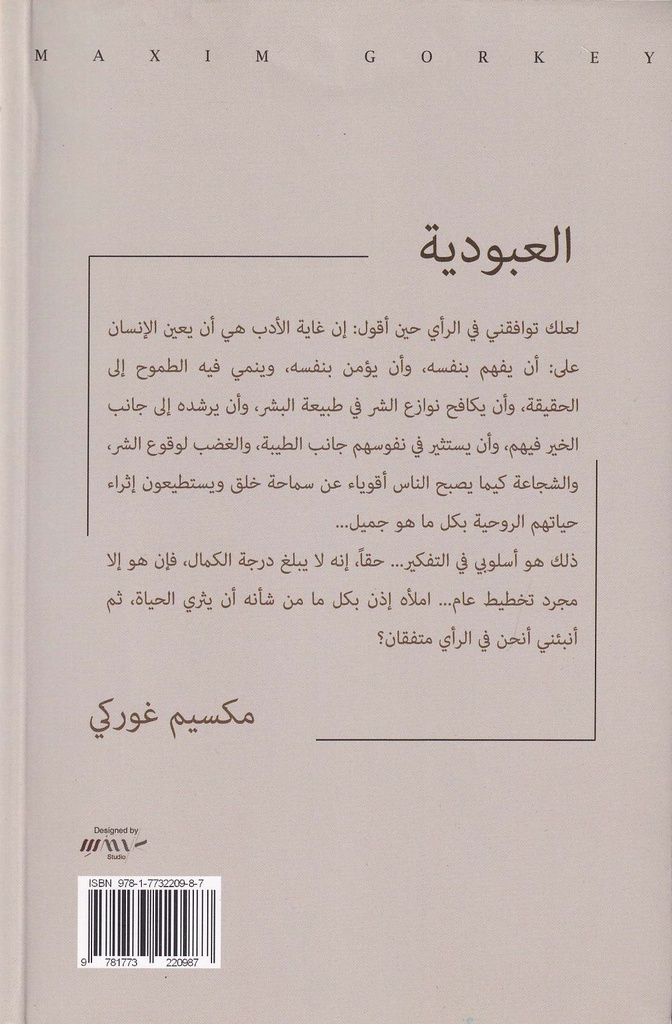 MAXIM GORKEY
العبودية
لعلك توافقني في الرأي حين أقول: إن غاية الأدب هي أن يعين الإنسان
على: أن يفهم بنفسه، وأن يؤمن بنفسه، وينمي فيه الطموح إلى
الحقيقة، وأن يكافح نوازع الشر في طبيعة البشر، وأن يرشده إلى جانب
الخير فيهم، وأن يستثير في نفوسهم جانب الطيبة، والغضب لوقوع الشر،
والشجاعة كيما يصبح الناس أقوياء عن سماحة خلق ويستطيعون إثراء
حياتهم الروحية بكل ما هو جميل...
ذلك هو أسلوبي في التفكير... حقاً، إنه لا يبلغ درجة الكمال، فإن هو إلا
مجرد تخطيط عام... املأه إذن بكل ما من شأنه أن يثري الحياة، ثم
أنبئني أنحن في الرأي متفقان؟
مكسيم غوركي
Designed by
Studio
ISBN 978-1-7732209-8-7
9 781773 220987